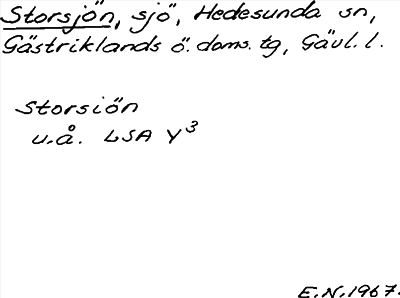 Storsjön, sjö, Hedesunda sn,
Gästriklands ö. doms. tg, Gävl. l.
Storsiön
u.å. LSA Y³
E.N. 1967.